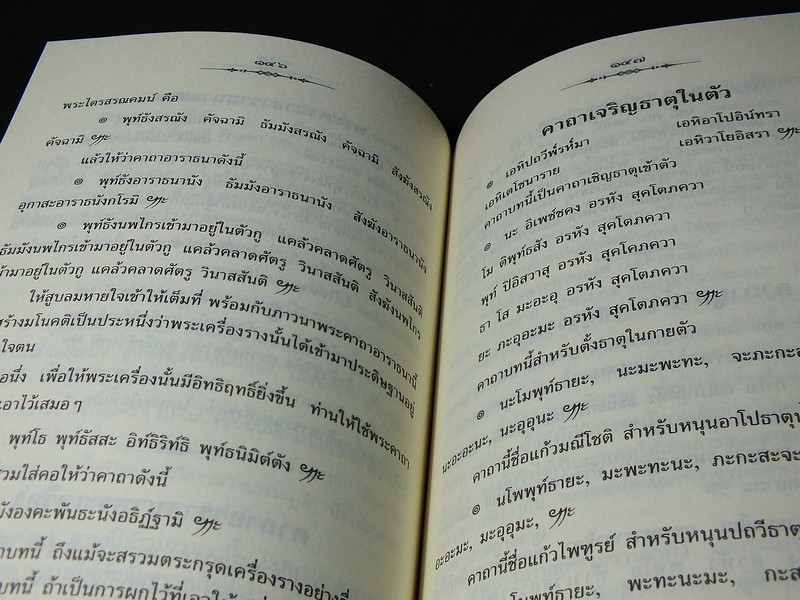 ๑๔๖
พระไตรสรณคมน์ คือ
๑ พุท์ธังสรณัง คัจฉามิ ธัมมังสรณัง คัจฉามิ สังฆังสรณัง
คัจฉามิ
แล้วให้ว่าคาถาอาราธนาดังนี้
๑ พุท์ธังอาราธนานัง ธัมมังอาราธนานัง สังฆังอาราธนานัง
อุกาสะอาราธนังกโรมิ
๑ พุท์ธังนพไกรเข้ามาอยู่ในตัวกู แคล้วคลาดศัตรู วินาสสันติ
ธัมมังนพไกรเข้ามาอยู่ในตัวกู แคล้วคลาดศัตรู วินาสสันติ สังฆังนพไกร
ข้ามาอยู่ในตัวกู แคล้วคลาดศัตรู วินาสสันติ
ให้สูบลมหายใจเข้าให้เต็มที่ พร้อมกับภาวนาพระคาถาอาราธนานี้
สร้างมโนคติเป็นประหนึ่งว่าพระเครื่องรางนั้นได้เข้ามาประดิษฐานอยู่
ใจตน
อนึ่ง เพื่อให้พระเครื่องนั้นมีอิทธิฤทธิ์ยิ่งขึ้น ท่านให้ใช้พระคาถา
ะอาไว้เสมอ ๆ
พุท์โธ พุท์ธัสสะ อิท์ธิริท์ธิ พุท์ธนิมิต์ตัง
รวมใส่คอให้ว่าคาถาดังนี้
ังองคะพันธะนังอธิฏ์ฐามิ
าบทนี้ ถึงแม้จะสรวมตระกรุดเครื่องรางอย่างอื่
๑๔๗
คาถาเจริญธาตุในตัว
๑ เอหิปถวีพ์รห์มา เอหิอาโปอิน์ทรา
เอหิเตโชนาราย เอหิวาโยอิสรา
คาถาบทนี้เป็นคาถาเชิญธาตุเข้าตัว
๑ นะ อิเพช์ชคง อรหัง สุคโตภควา
โม ติพุท์ธสัง อรหัง สุคโตภควา
พุท์ ปิอิสวาสุ อรหัง สุคโตภควา
ธา โส มะอะอุ อรหัง สุคโตภควา
ยะ ภะอุอะมะ อรหัง สุคโตภควา
คาถาบทนี้สำหรับตั้งธาตุในกายตัว
๑ นะโมพุท์ธายะ, นะมะพะทะ, จะภะกะส
นะอะอะนะ, นะอุอุนะ
คาถานี้ชื่อแก้วมณีโชติ สำหรับหนุนอาโปธาตุ
๑ นโพพุท์ธายะ, มะพะทะนะ, ภะกะสะจะ
อะอะมะ, มะอุอุมะ,
คาถานี้ชื่อแก้วไพฑูรย์ สำหรับหนุนปถวีธาตุ
โมพุท์ธายะ, พะทะนะมะ, กะส